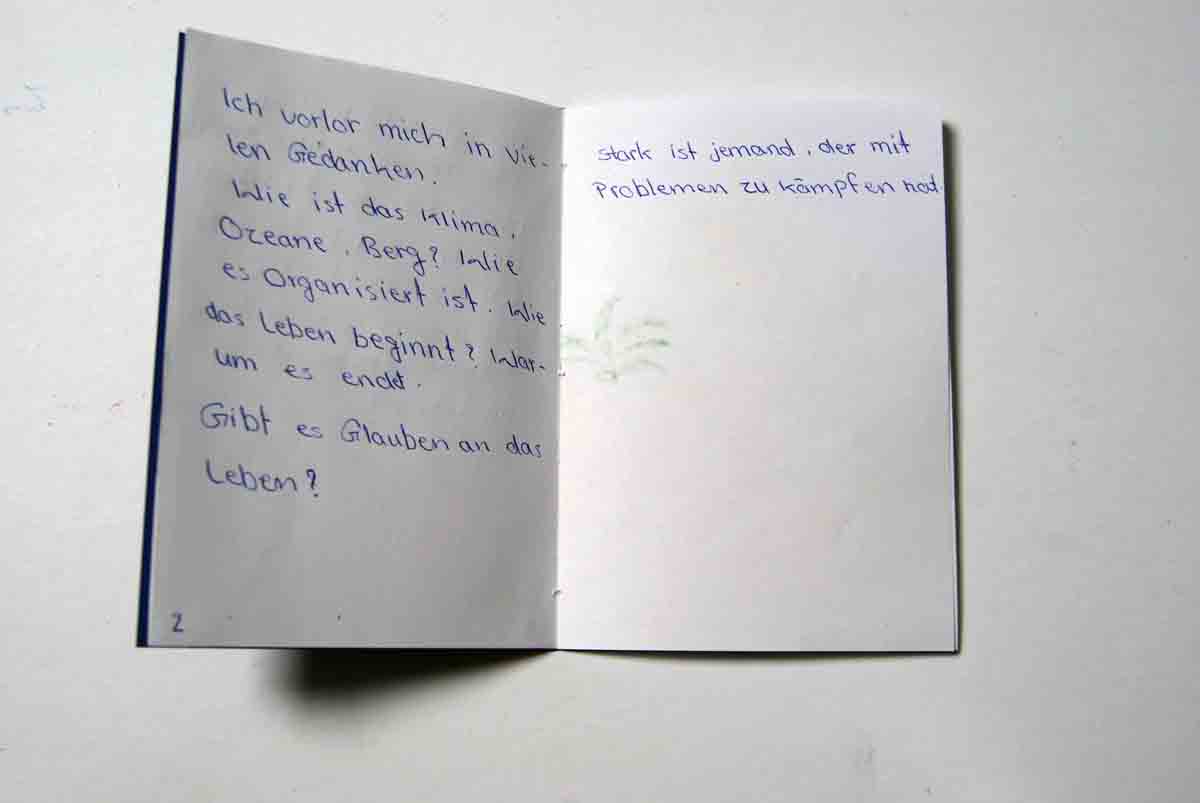 Ich vorlor mich in vie-
len Gedanken.
Wie ist das Klima,
Ozeane, Berg? Wie
es Organisiert ist. Wie
das Leben beginnt? War-
um es endet.
Gibt es Glauben an das
Leben?
2
stark ist jemand, der mit
Problemen zu kämpfen hat.